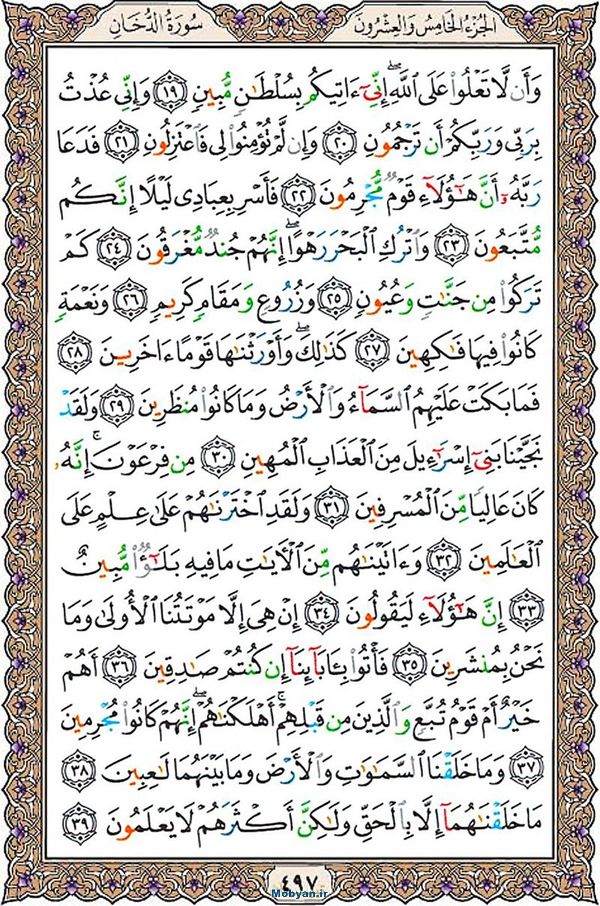 سُورَةُ الدُّخَانِ الجُزْءُ الخَامِسُ وَالعِشْرُونَ
وَأَن لَّا تَعْلُوا۟ عَلَى ٱللَّهِ ۖ إِنِّىٓ ءَاتِيكُم بِسُلْطَـٰنٍ مُّبِينٍ ﴿١٩﴾ وَإِنِّى عُذْتُ
بِرَبِّى وَرَبِّكُمْ أَن تَرْجُمُونِ ﴿٢٠﴾ وَإِن لَّمْ تُؤْمِنُوا۟ لِى فَٱعْتَزِلُونِ ﴿٢١﴾ فَدَعَا
رَبَّهُۥٓ أَنَّ هَـٰٓؤُلَآءِ قَوْمٌ مُّجْرِمُونَ ﴿٢٢﴾ فَأَسْرِ بِعِبَادِى لَيْلًا إِنَّكُم
مُّتَّبَعُونَ ﴿٢٣﴾ وَٱتْرُكِ ٱلْبَحْرَ رَهْوًا ۖ إِنَّهُمْ جُندٌ مُّغْرَقُونَ ﴿٢٤﴾ كَمْ
تَرَكُوا۟ مِن جَنَّـٰتٍ وَعُيُونٍ ﴿٢٥﴾ وَزُرُوعٍ وَمَقَامٍ كَرِيمٍ ﴿٢٦﴾ وَنَعْمَةٍ
كَانُوا۟ فِيهَا فَـٰكِهِينَ ﴿٢٧﴾ كَذَٰلِكَ ۖ وَأَوْرَثْنَـٰهَا قَوْمًا ءَاخَرِينَ ﴿٢٨﴾
فَمَا بَكَتْ عَلَيْهِمُ ٱلسَّمَآءُ وَٱلْأَرْضُ وَمَا كَانُوا۟ مُنظَرِينَ ﴿٢٩﴾ وَلَقَدْ
نَجَّيْنَا بَنِىٓ إِسْرَٰٓءِيلَ مِنَ ٱلْعَذَابِ ٱلْمُهِينِ ﴿٣٠﴾ مِن فِرْعَوْنَ ۚ إِنَّهُۥ
كَانَ عَالِيًا مِّنَ ٱلْمُسْرِفِينَ ﴿٣١﴾ وَلَقَدِ ٱخْتَرْنَـٰهُمْ عَلَىٰ عِلْمٍ عَلَى
ٱلْعَـٰلَمِينَ ﴿٣٢﴾ وَءَاتَيْنَـٰهُم مِّنَ ٱلْـَٔايَـٰتِ مَا فِيهِ بَلَـٰٓؤٌا۟ مُّبِينٌ
﴿٣٣﴾ إِنَّ هَـٰٓؤُلَآءِ لَيَقُولُونَ ﴿٣٤﴾ إِنْ هِىَ إِلَّا مَوْتَتُنَا ٱلْأُولَىٰ وَمَا
نَحْنُ بِمُنشَرِينَ ﴿٣٥﴾ فَأْتُوا۟ بِـَٔابَآئِنَآ إِن كُنتُمْ صَـٰدِقِينَ ﴿٣٦﴾ أَهُمْ
خَيْرٌ أَمْ قَوْمُ تُبَّعٍ وَٱلَّذِينَ مِن قَبْلِهِمْ ۚ أَهْلَكْنَـٰهُمْ ۖ إِنَّهُمْ كَانُوا۟ مُجْرِمِينَ
﴿٣٧﴾ وَمَا خَلَقْنَا ٱلسَّمَـٰوَٰتِ وَٱلْأَرْضَ وَمَا بَيْنَهُمَا لَـٰعِبِينَ ﴿٣٨﴾
مَا خَلَقْنَـٰهُمَآ إِلَّا بِٱلْحَقِّ وَلَـٰكِنَّ أَكْثَرَهُمْ لَا يَعْلَمُونَ ﴿٣٩﴾
٤٩٧
Mobyan.ir